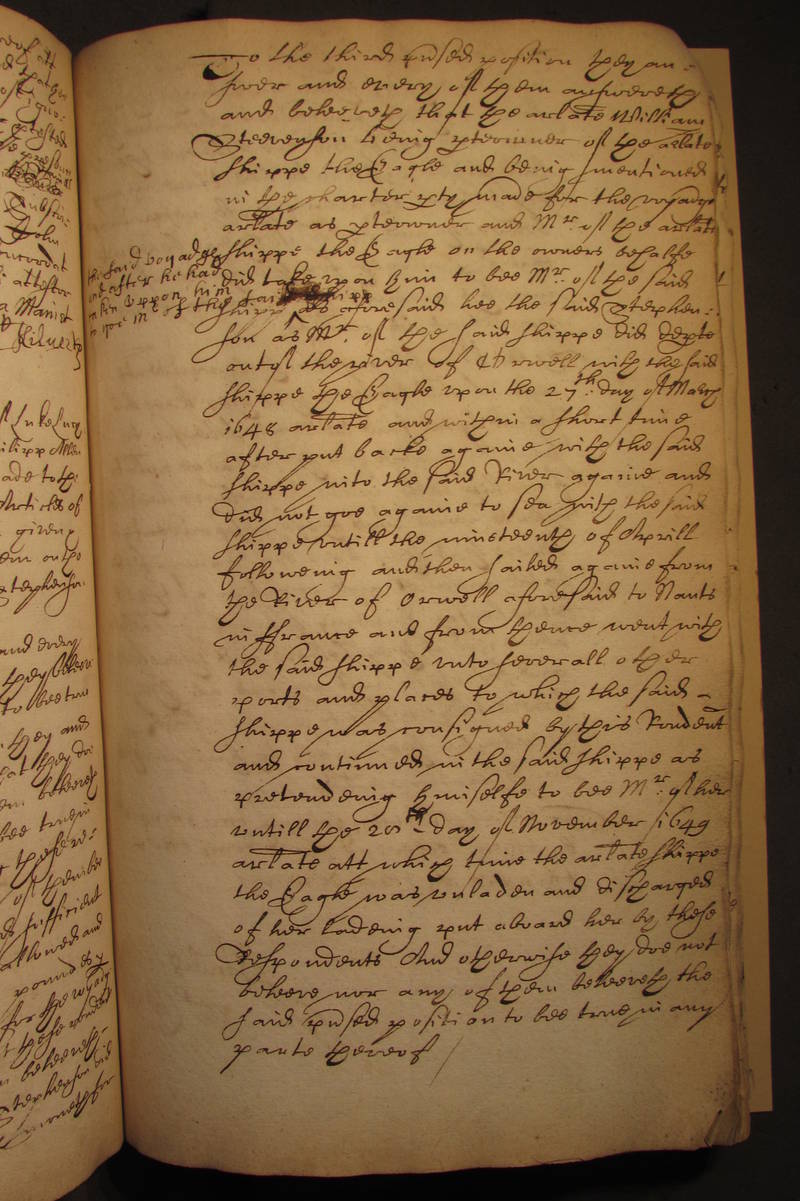 To the third prsed position they an-
swer and every of them answereth
and beleeveth that the arlate William
Steevenson being pteowner of the arlate
shippe the Eagle and being mentioned
in the charter pty made for the voyadge
arlate as pteowner and Mr. of the arlate
shippe the Eagle on the owners behalfe
did take upon him to bee Mr. of the said
shipp as aforesaid hee the said Stephen-
son as Mr. of the said shippe did depte
out of the river of Orwell with the said
shippe the Eagle upon the 27th day of March
1648 arlate and within a short time
after put backe againe with the said
shippe into the said River againe and
did not goe againe to sea with the said
shippe untill the nineteenth of Aprill
following and then sailed againe from
the River of Orwell aforesaid to Nants
in ffrance and from thence went with
the said shippe unto severall other
ports and places to which the said
shippe was consigned by this Rondent
and continued in the said shippe as
pretending himselfe to bee Mr. of her
untill the 20th day of November 1649
arlate att which time the arlate shippe
the Eagle was unladen and discharged
of her ladeing put aboard her by these
Respondents And otherwise they doe not
beleeve nor any of them beleeveth the
said prsed position to bee true in any
parte thereof /
the said voyadge
and after he had
upon him
Mr of the said shipp
concordat
attestor
Lukeling
ade to the
Articles of
given
Stephenson
and every
they beleeve
to bee true
they and
that they doe
beleeveth
bee true in
of them
sufficient
allowed and
pounds
for the voyadg
Stephenson did